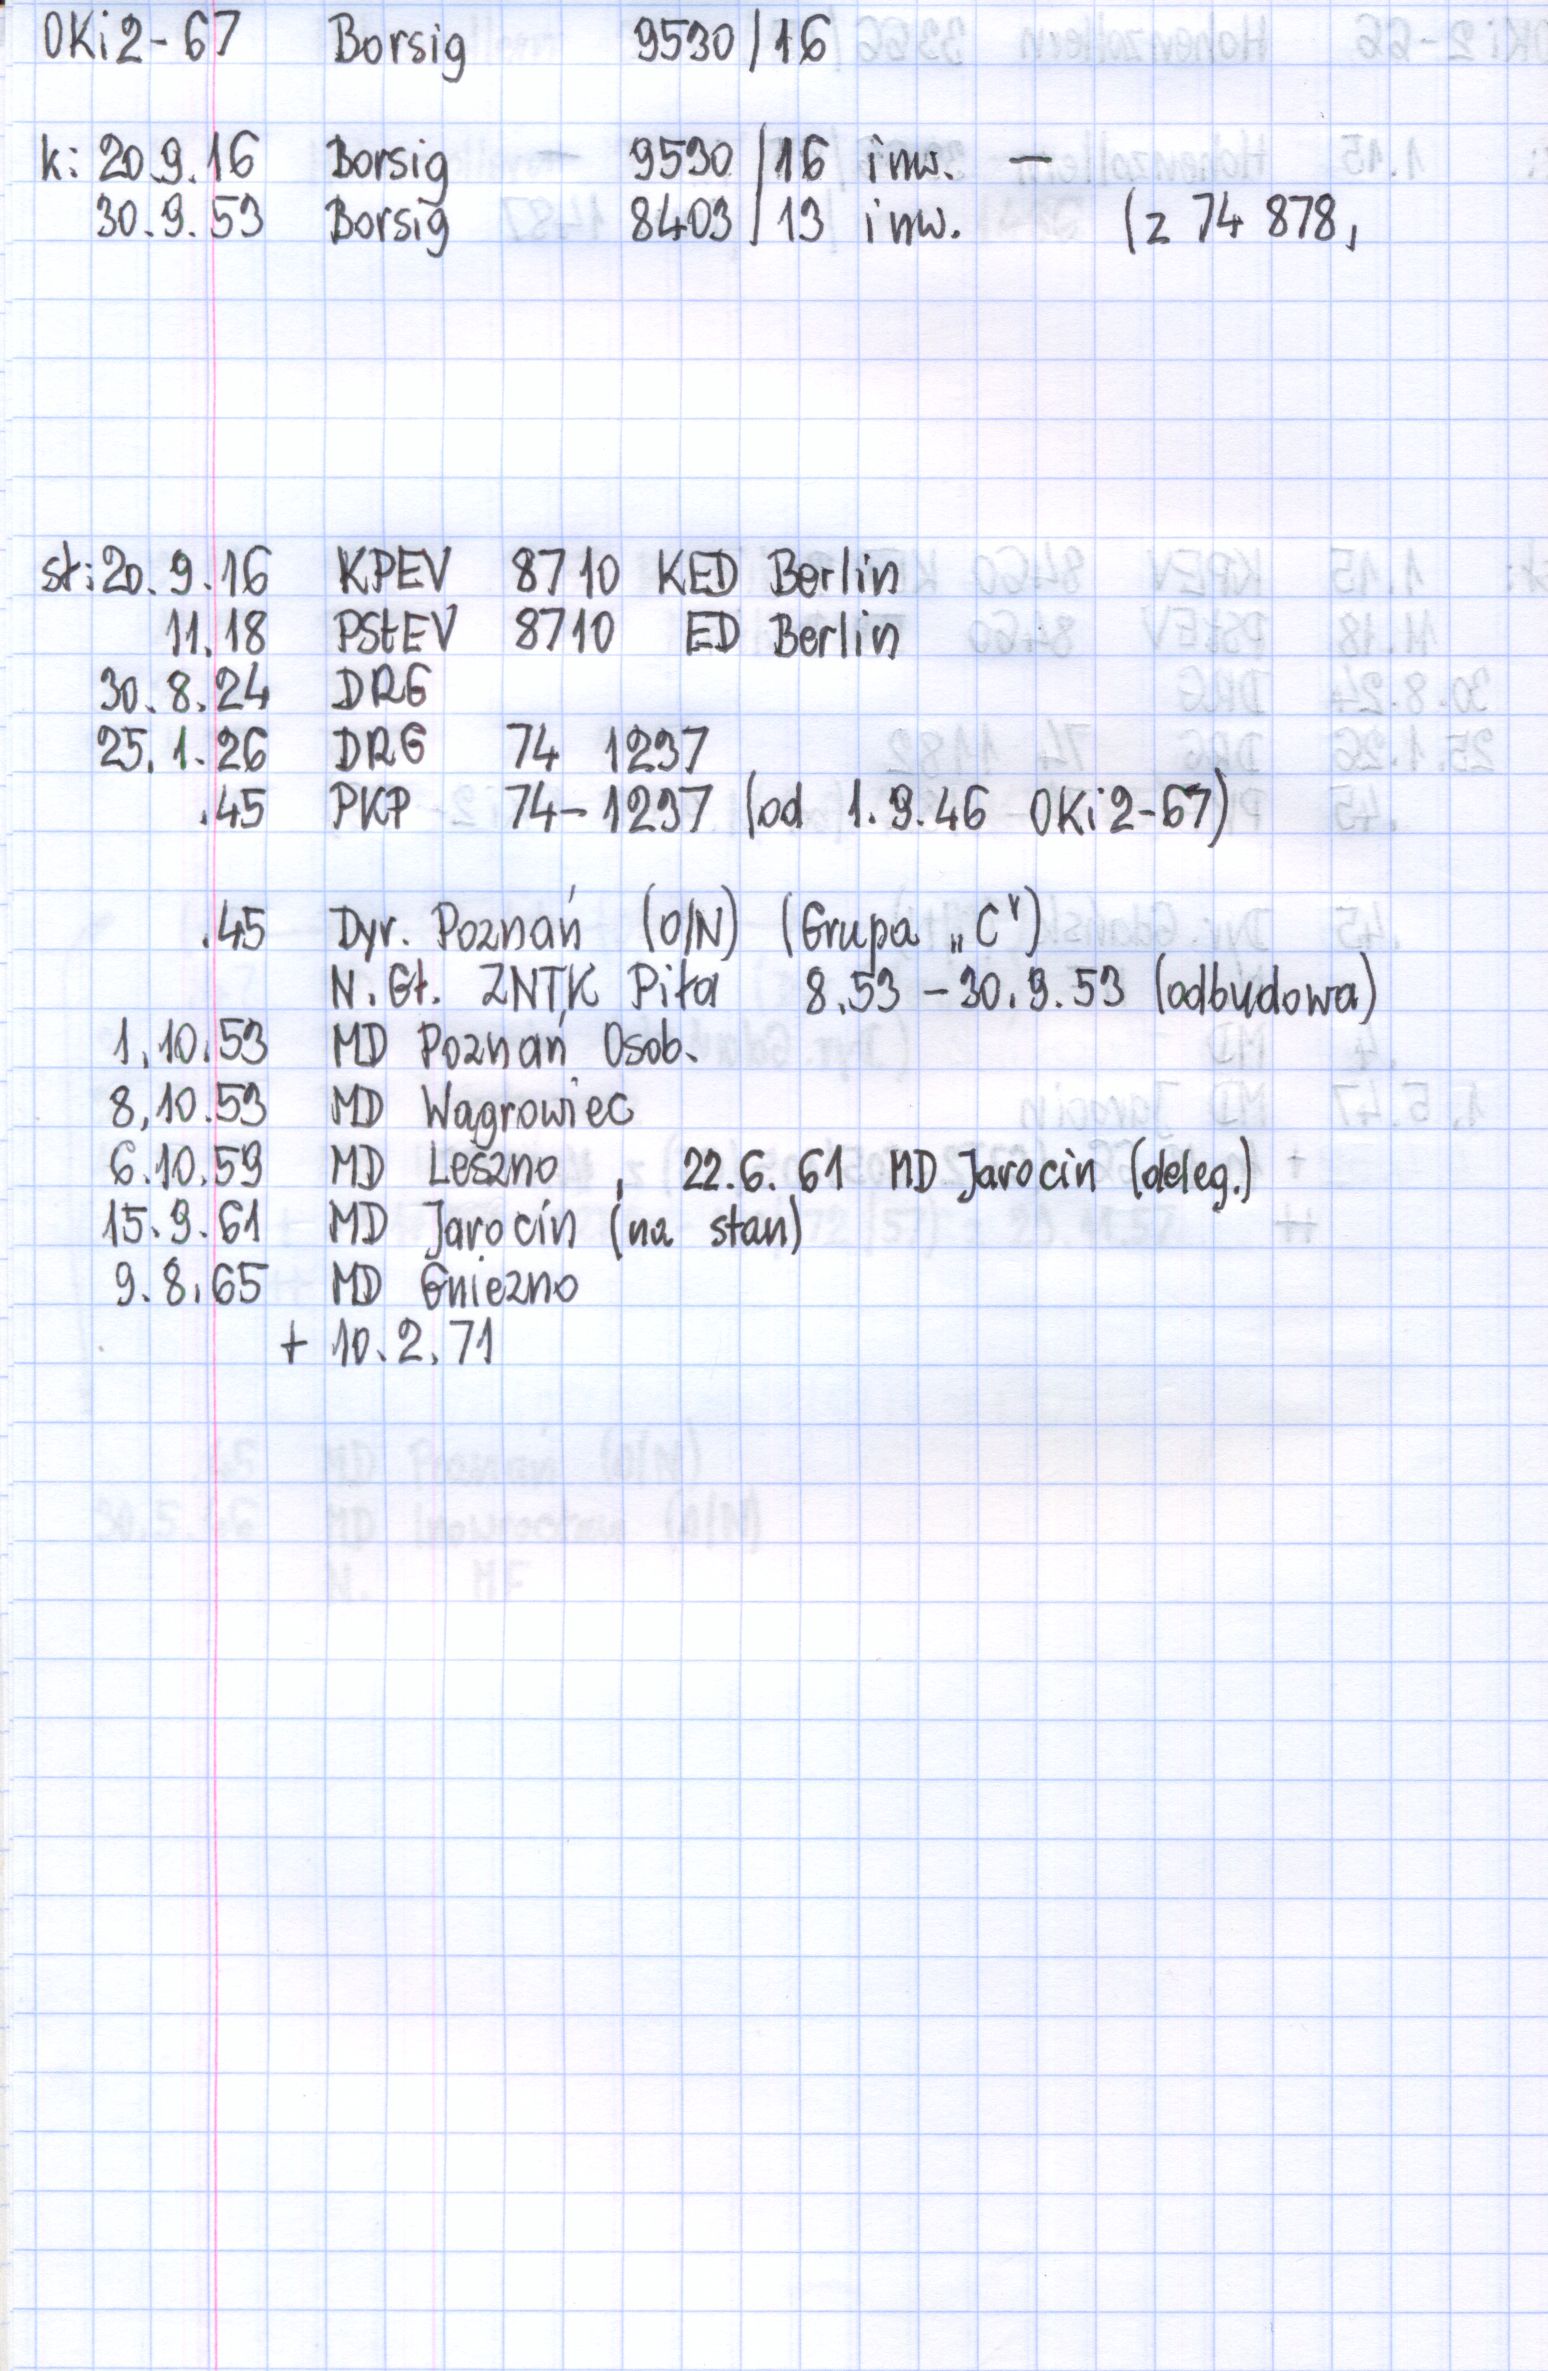 OKi2-67 Borsig 9530/16
k: 20.9.16 Borsig 9530/16 inw. —
30.9.53 Borsig 8403/13 inw. (z 74 878,
st: 20.9.16 KPEV 8710 KED Berlin
11.18 PStEV 8710 ED Berlin
30.8.24 DRG
25.1.26 DRG 74 1297
.45 PKP 74-1297 (od 1.9.46 OKi2-67)
.45 Dyr. Poznań (O/N) (Grupa „C")
N.Gł. ZNTK Piła 8.53 - 30.9.53 (odbudowa)
1.10.53 MD Poznań Osob.
8.10.53 MD Wągrowiec
6.10.59 MD Leszno , 22.6.61 MD Jarocin (deleg.)
15.9.61 MD Jarocin (na stan)
9.8.65 MD Gniezno
+ 10.2.71